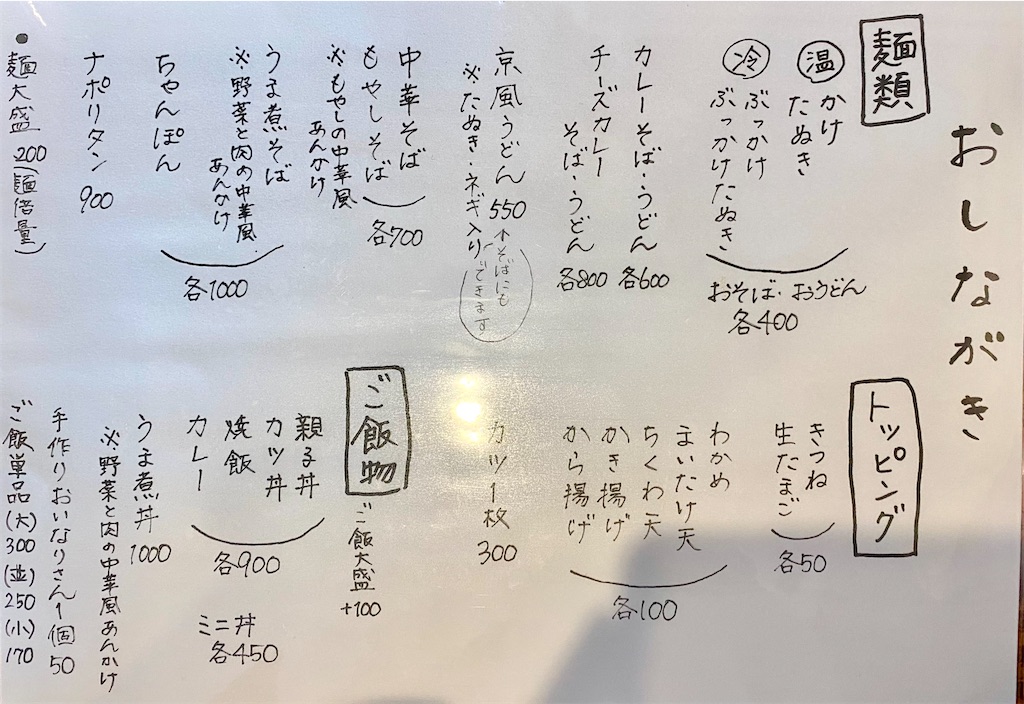 おしながき
麺類
温 かけ
たぬき
冷 ぶっかけ
ぶっかけたぬき
おそば・おうどん
各400
カレーそば・うどん 各600
チーズカレー
そば・うどん 各800
京風うどん 550
※たぬき・ネギ入り
↑そばにも
できます
中華そば
もやしそば
各700
※もやしの中華風
あんかけ
うま煮そば
※野菜と肉の中華風
あんかけ
ちゃんぽん
各1000
ナポリタン 900
●麺大盛 200(麺倍量)
トッピング
きつね
生たまご
各50
わかめ
まいたけ天
ちくわ天
かき揚げ
から揚げ
各100
カツ1枚 300
ご飯物
ご飯大盛
+100
親子丼
カツ丼
焼飯
カレー
各900
ミニ丼
各450
うま煮丼 1000
※野菜と肉の中華風あんかけ
手作りおいなりさん1個 50
ご飯単品(大)300(並)250(小)170